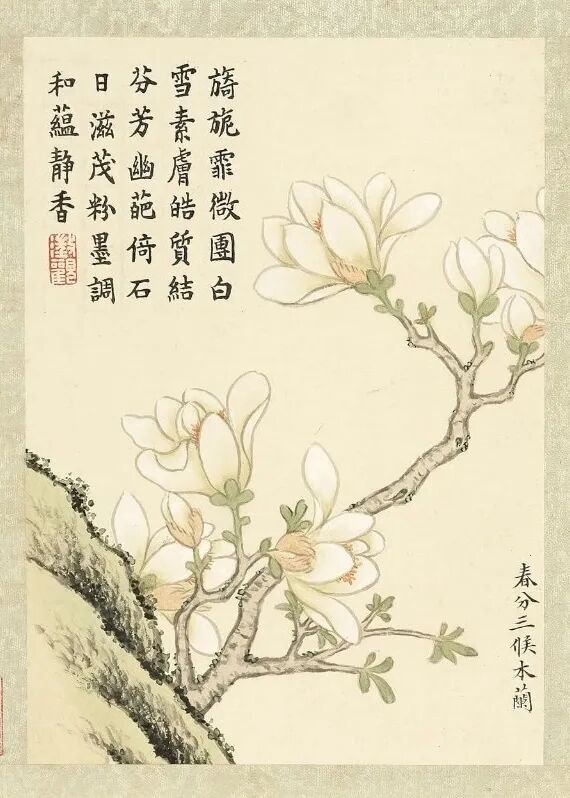 旖旎霏微團白
雪素膚皓質結
芬芳幽葩倚石
日滋茂粉墨調
和蘊静香
春分三候木蘭